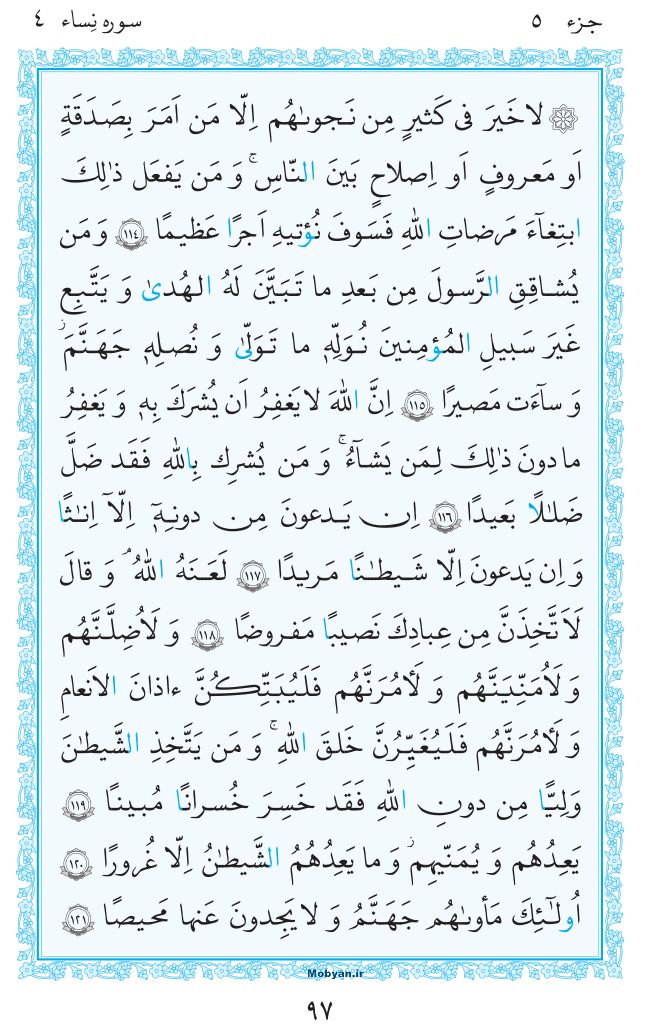 جزء ٥
سوره نِساء ٤
۞ لاخَيرَ فى كَثيرٍ مِن نَجوىٰهُم اِلّا مَن اَمَرَ بِصَدَقَةٍ
اَو مَعروفٍ اَو اِصلاحٍ بَينَ النّاسِ ۚ وَ مَن يَفعَل ذٰلِكَ
ابتِغآءَ مَرضاتِ اللّٰهِ فَسَوفَ نُؤتيهِ اَجرًا عَظيمًا ﴿١١٤﴾ وَ مَن
يُشاقِقِ الرَّسولَ مِن بَعدِ ما تَبَيَّنَ لَهُ الهُدىٰ وَ يَتَّبِع
غَيرَ سَبيلِ المُؤمِنينَ نُوَلِّهٖ ما تَوَلّىٰ وَ نُصلِهٖ جَهَنَّمَ ۖ
وَ سآءَت مَصيرًا ﴿١١٥﴾ اِنَّ اللّٰهَ لا يَغفِرُ اَن يُشرَكَ بِهٖ وَ يَغفِرُ
ما دونَ ذٰلِكَ لِمَن يَشآءُ ۚ وَ مَن يُشرِك بِاللّٰهِ فَقَد ضَلَّ
ضَلٰلًا بَعيدًا ﴿١١٦﴾ اِن يَدعونَ مِن دونِهٖٓ اِلّآ اِنٰثًا
وَ اِن يَدعونَ اِلّا شَيطٰنًا مَريدًا ﴿١١٧﴾ لَعَنَهُ اللّٰهُ ۘ وَ قالَ
لَاَتَّخِذَنَّ مِن عِبادِكَ نَصيبًا مَفروضًا ﴿١١٨﴾ وَ لَاُضِلَّنَّهُم
وَ لَاُمَنِّيَنَّهُم وَ لَاٰمُرَنَّهُم فَلَيُبَتِّكُنَّ ءاذانَ الاَنعامِ
وَ لَاٰمُرَنَّهُم فَلَيُغَيِّرُنَّ خَلقَ اللّٰهِ ۚ وَ مَن يَتَّخِذِ الشَّيطٰنَ
وَلِيًّا مِن دونِ اللّٰهِ فَقَد خَسِرَ خُسرانًا مُبينًا ﴿١١٩﴾
يَعِدُهُم وَ يُمَنّيهِم ۖ وَ ما يَعِدُهُمُ الشَّيطٰنُ اِلّا غُرورًا ﴿١٢٠﴾
اُولٰٓئِكَ مَأوىٰهُم جَهَنَّمُ وَ لا يَجِدونَ عَنها مَحيصًا ﴿١٢١﴾
Mobyan.ir
٩٧